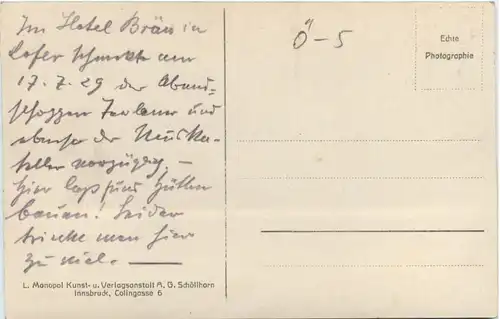 Im Hotel Bräu in
Lofer schmeckte am
17.7.29 der Abend-
schoppen Terlaner und
ebenso der Muska-
teller vorzüglig. –
Hier lasst uns Hütten
bauen! Leider
trinkt man hier
zu viel. —
Ö-5
Echte
Photographie
L. Monopol Kunst- u. Verlagsanstalt A. G. Schöllhorn
Innsbruck, Colingasse 6